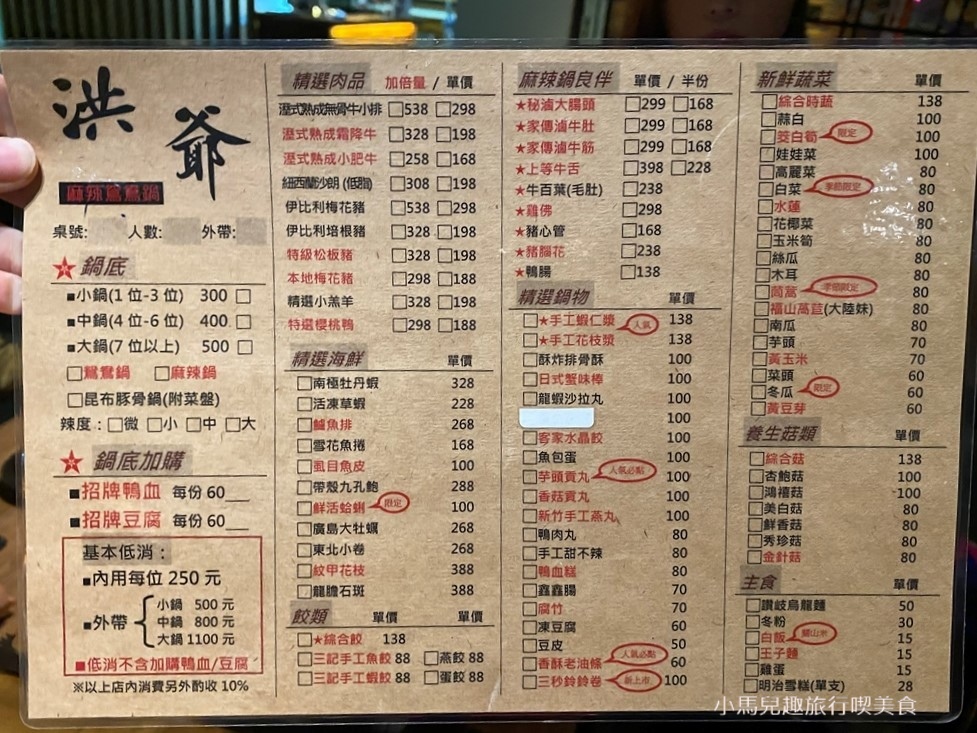 洪爺
麻辣鴛鴦鍋
桌號: 人數: 外帶:
鍋底
■小鍋(1 位-3 位) 300 □
■中鍋(4 位-6 位) 400 □
■大鍋(7 位以上) 500 □
□鴛鴦鍋 □麻辣鍋
□昆布豚骨鍋(附菜盤)
辣度：□微 □小 □中 □大
鍋底加購
■招牌鴨血 每份 60__
■招牌豆腐 每份 60__
基本低消：
■內用每位 250 元
■外帶
小鍋 500 元
中鍋 800 元
大鍋 1100 元
■低消不含加購鴨血/豆腐
※以上店內消費另外酌收 10%
精選肉品 加倍量 / 單價
溼式熟成無骨牛小排 □538 □298
溼式熟成霜降牛 □328 □198
溼式熟成小肥牛 □258 □168
紐西蘭沙朗 (低脂) □308 □198
伊比利梅花豬 □538 □298
伊比利培根豬 □328 □198
特級松板豬 □328 □198
本地梅花豬 □298 □188
精選小羔羊 □328 □198
特選櫻桃鴨 □298 □188
精選海鮮 單價
□南極牡丹蝦 328
□活凍草蝦 228
□鱸魚排 268
□雪花魚捲 168
□虱目魚皮 100
□帶殼九孔鮑 288
□鮮活蛤蜊 限定 100
□廣島大牡蠣 268
□東北小卷 268
□紋甲花枝 388
□龍膽石斑 388
餃類 單價 單價
□★綜合餃 138
□三記手工魚餃 88 □燕餃 88
□三記手工蝦餃 88 □蛋餃 88
麻辣鍋良伴 單價 / 半份
★秘滷大腸頭 □299 □168
★家傳滷牛肚 □299 □168
★家傳滷牛筋 □299 □168
★上等牛舌 □398 □228
★牛百葉(毛肚) □238
★雞佛 □298
★豬心管 □168
★豬腦花 □238
★鴨腸 □138
精選鍋物 單價
□★手工蝦仁漿 人氣 138
□★手工花枝漿 138
□酥炸排骨酥 100
□日式蟹味棒 100
□龍蝦沙拉丸 100
100
□客家水晶餃 100
□魚包蛋 100
□芋頭貢丸 人氣必點 100
□香菇貢丸 100
□新竹手工燕丸 100
□鴨肉丸 80
□手工甜不辣 80
□鴨血糕 80
□鑫鑫腸 70
□腐竹 70
□凍豆腐 60
□豆皮 50
□香酥老油條 人氣必點 60
□三秒鈴鈴卷 新上市 100
新鮮蔬菜 單價
□綜合時蔬 138
□蒜白 100
□茭白筍 限定 100
□娃娃菜 100
□高麗菜 80
□白菜 季節限定 80
□水蓮 80
□花椰菜 80
□玉米筍 80
□絲瓜 80
□木耳 80
□茼蒿 季節限定 80
□福山萵苣(大陸妹) 80
□南瓜 80
□芋頭 70
□黃玉米 70
□菜頭 60
□冬瓜 限定 60
□黃豆芽 60
養生菇類 單價
□綜合菇 138
□杏鮑菇 100
□鴻禧菇 100
□美白菇 80
□鮮香菇 80
□秀珍菇 80
□金針菇 80
主食 單價
□讚岐烏龍麵 50
□冬粉 30
□白飯 關山米 15
□王子麵 15
□雞蛋 15
□明治雪糕(單支) 28
小馬兒趣旅行喫美食